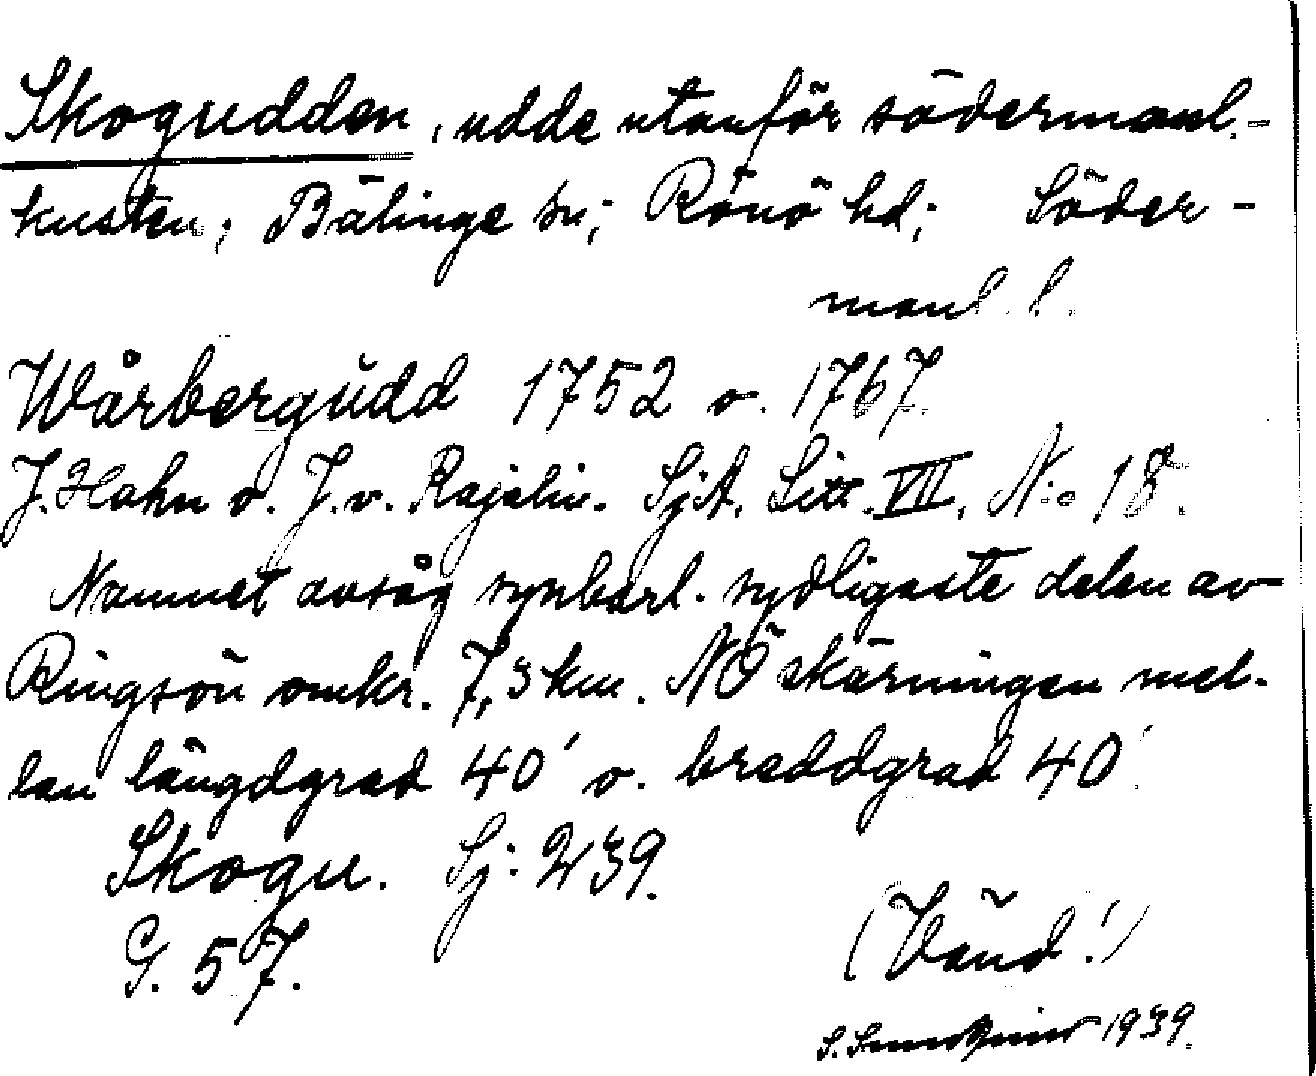 Skogudden, udde utanför södermanl.-
kusten; Bälinge sn; Rönö hd; Söder-
manl. l.
Wårbergudd 1752 o. 1767.
J. Hahn o. J. v. Rajalin. SjA. Litt. VII, N:o 18.
Namnet avsåg synbarl. sydligaste delen av
Ringsön omkr. 7,3 km. NÖ skärningen mel-
lan längdgrad 40' o. breddgrad 40'.
Skogu. Sj: 239.
G. 57.
(Vänd!)
S. 1939.